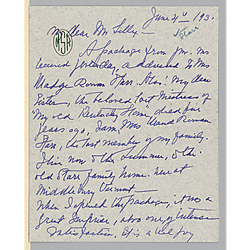 June 4th 195.
My dear Mr. Lilly.
A package from you was
received yesterday, addressed to Mrs
Madge Rowan Starr. Alas! My dear
Sister, the beloved last Mistress of
My old Kentucky Home, died four
years ago. I am, Mrs Rowan
Starr, the last member of my family.
I live now in the Summer, in the
old Starr family home here at
Middlebury Vermont.
When I opened the package, it was a
Great Surprise, also my intense
Satisfaction, It is a